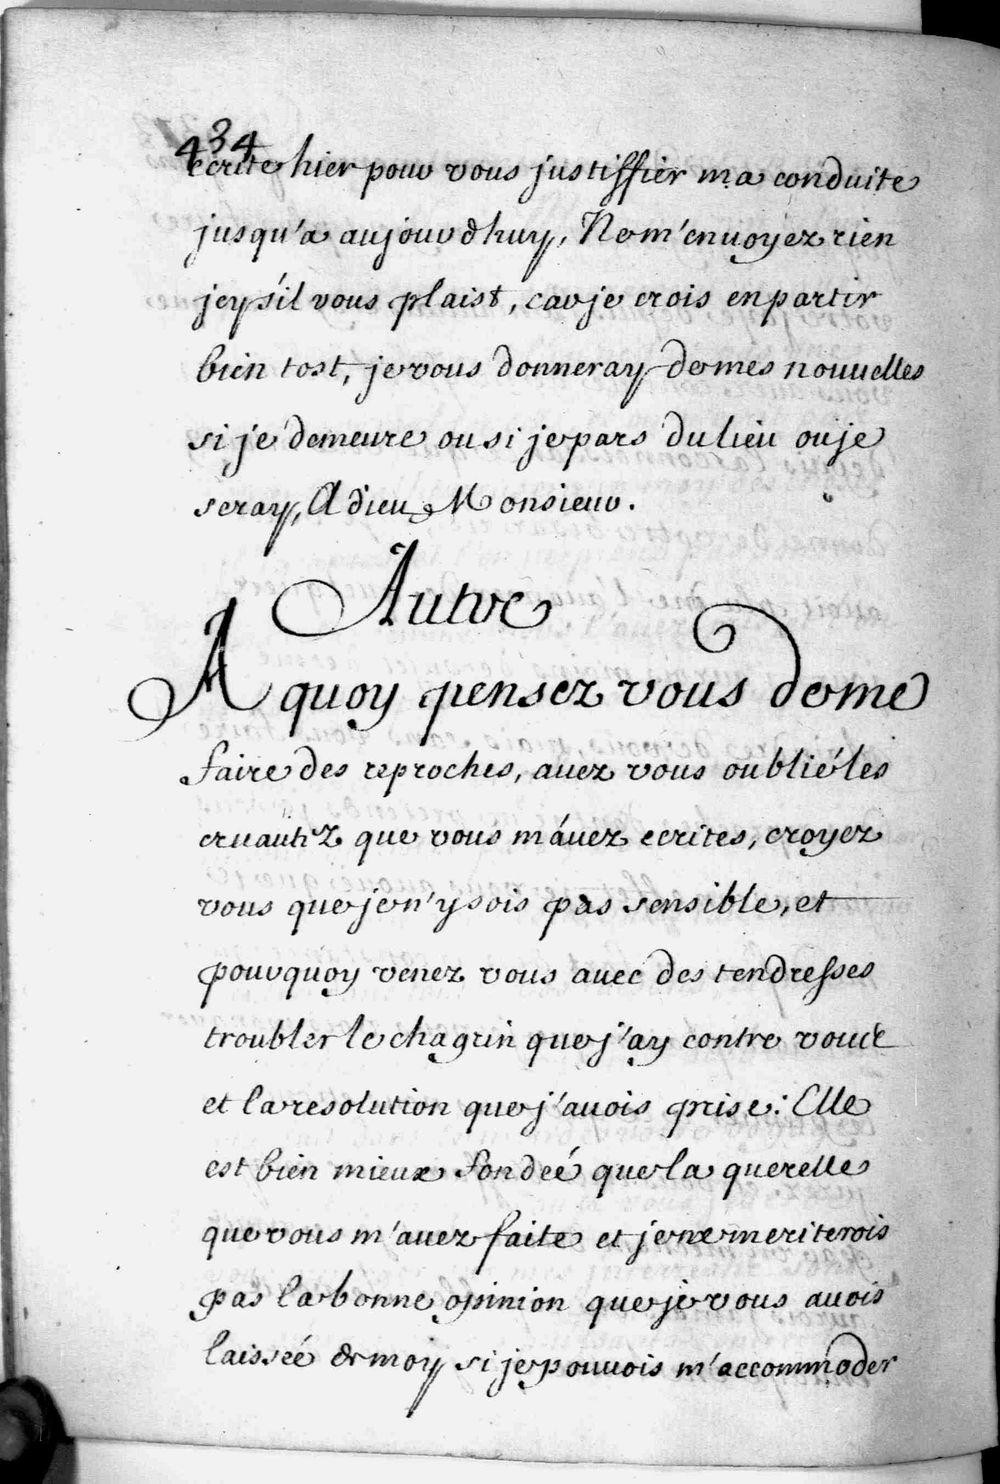 434
ecrite hier pour vous justiffier ma conduite
jusqu'a aujourdhuy, Ne m'enuoyez rien
jcy s'il vous plaist, car je crois en partir
bien tost, je vous donneray de mes nouuelles
si je demeure ou si je pars du lieu ou je
seray, Adieu Monsieur.
Autre
A quoy pensez vous de me
faire des reproches, auez vous oublié les
cruautéz que vous m'áuez ecrites, croyez
vous que je n'y sois pas sensible, et
pourquoy venez vous auec des tendresses
troubler le chagrin que j'ay contre vous
et la resolution que j'auois prise: Elle
est bien mieux fondeé que la querelle
que vous m'auez faite et je ne meriterois
pas la bonne opinion que je vous auois
laissée de moy si je pouuois m'accommoder